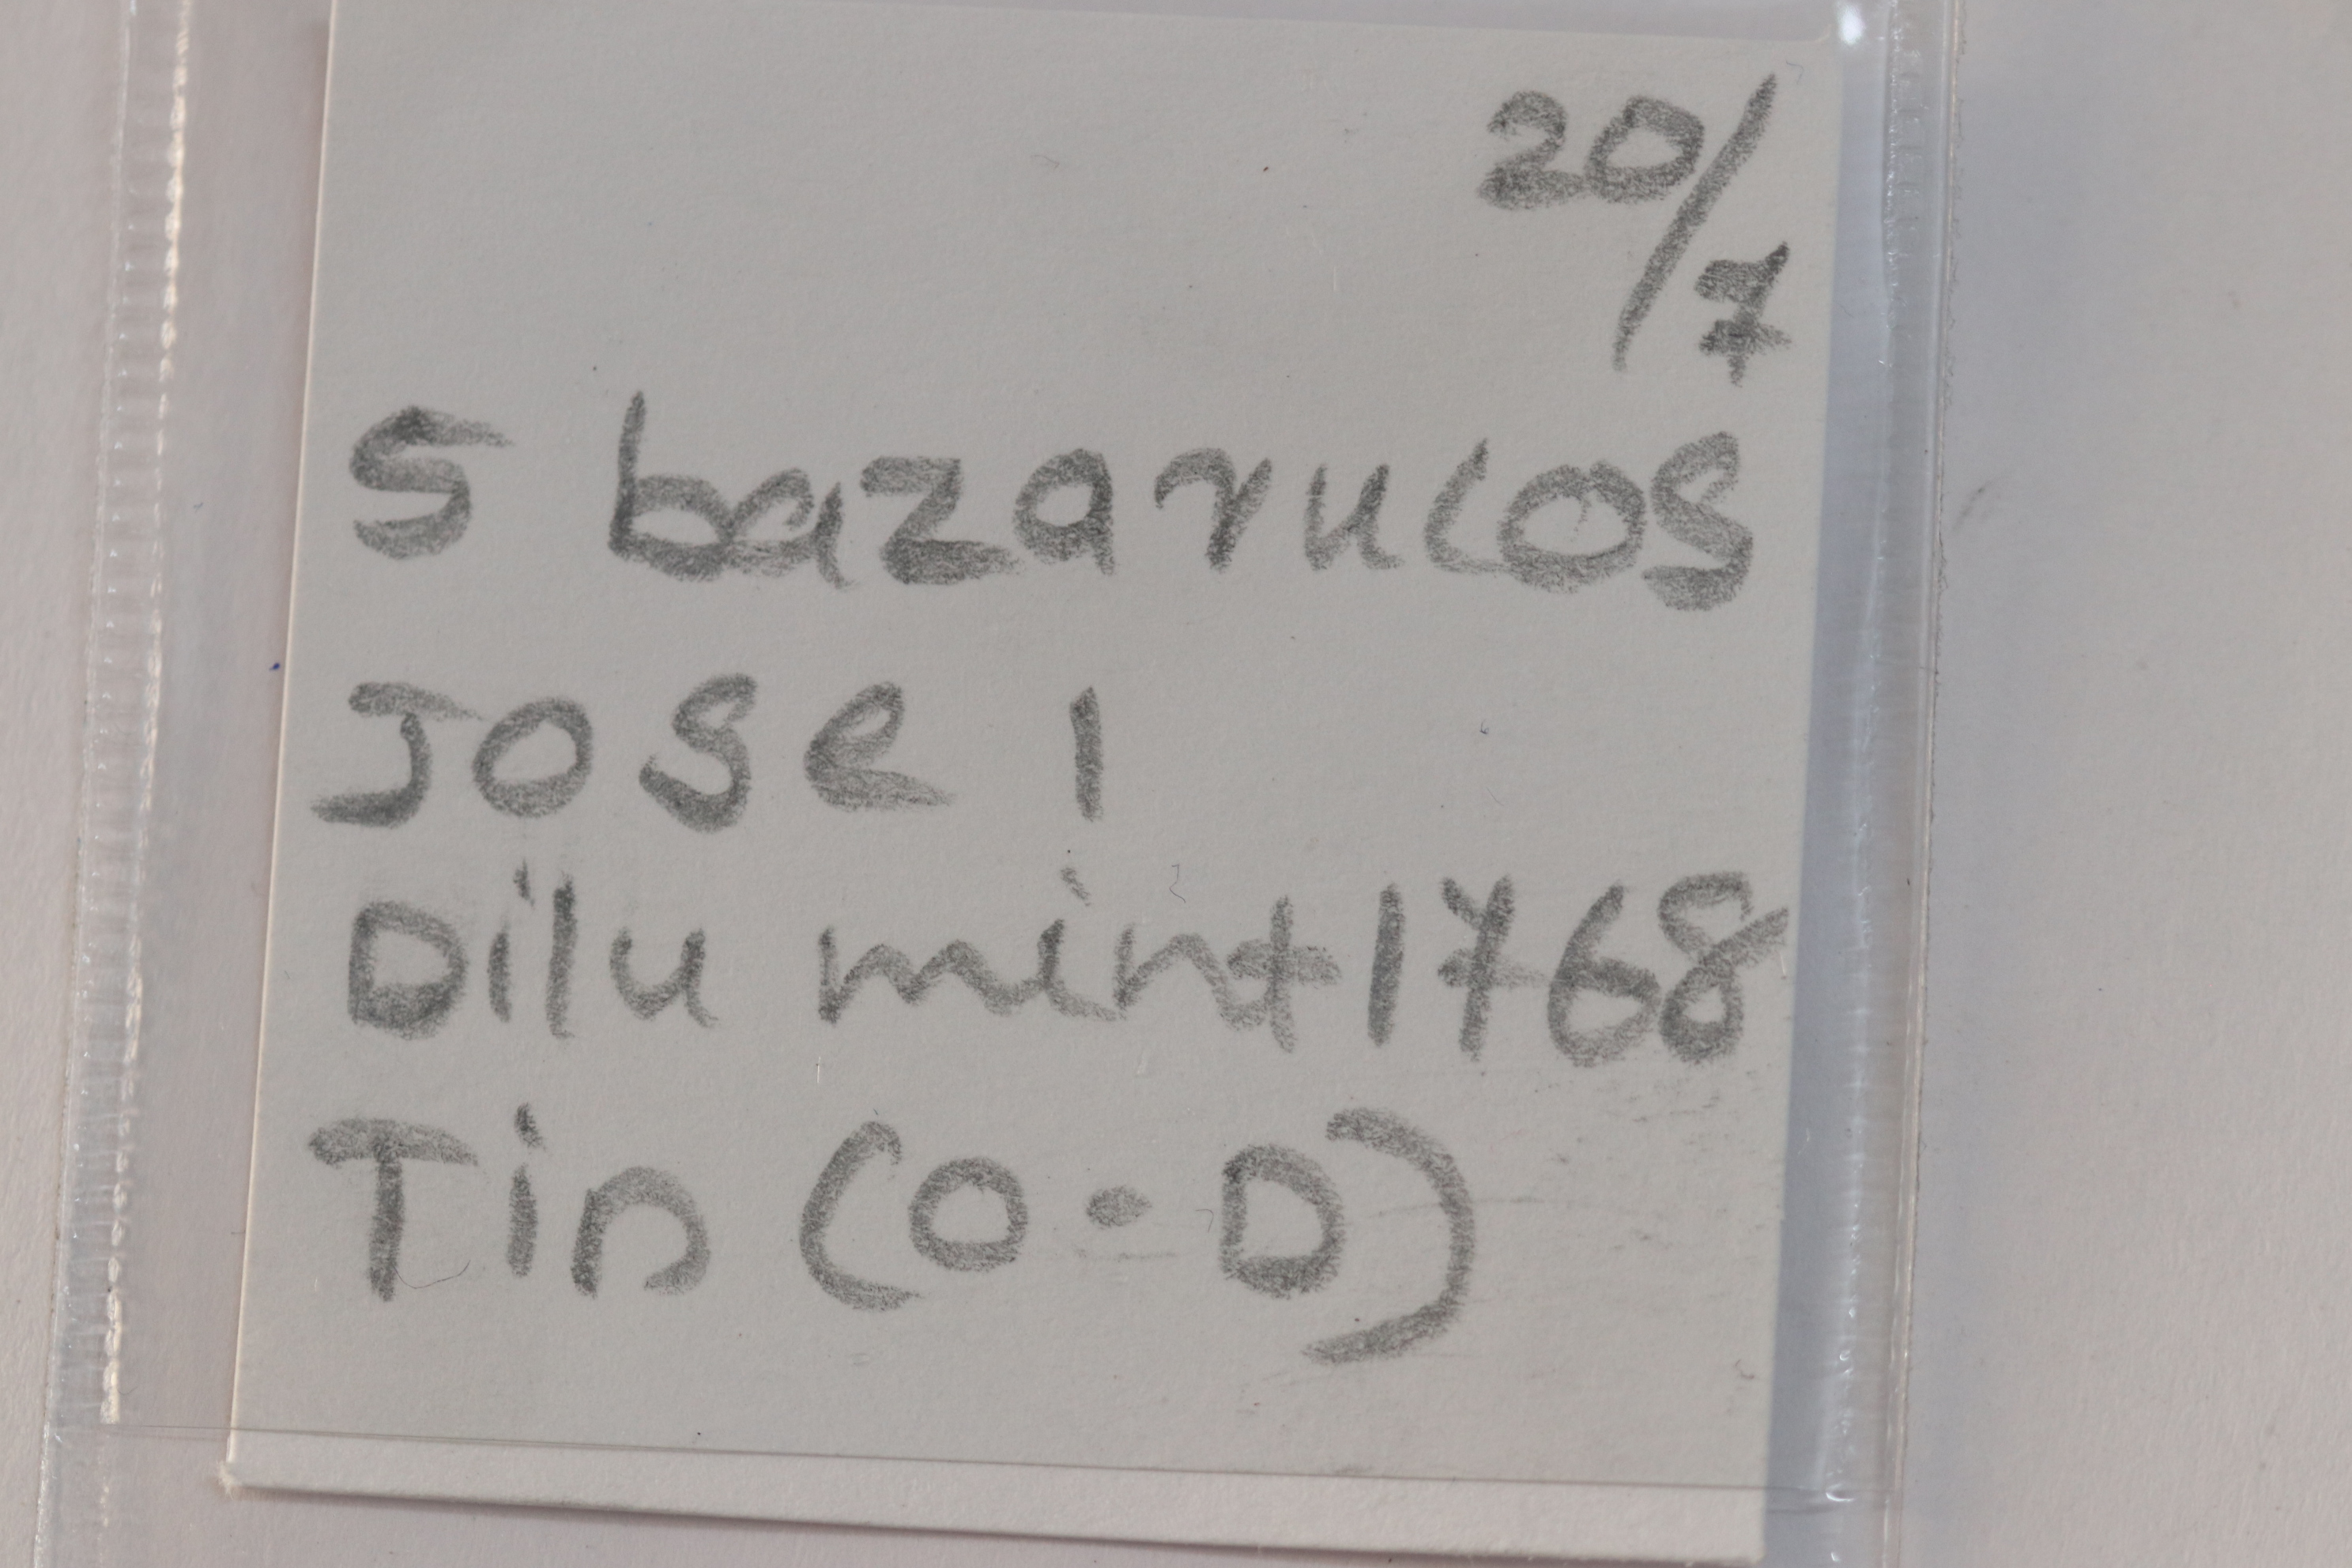 20/7
5 bazarucos
Jose I
Dilu mint 1768
Tin (O-D)